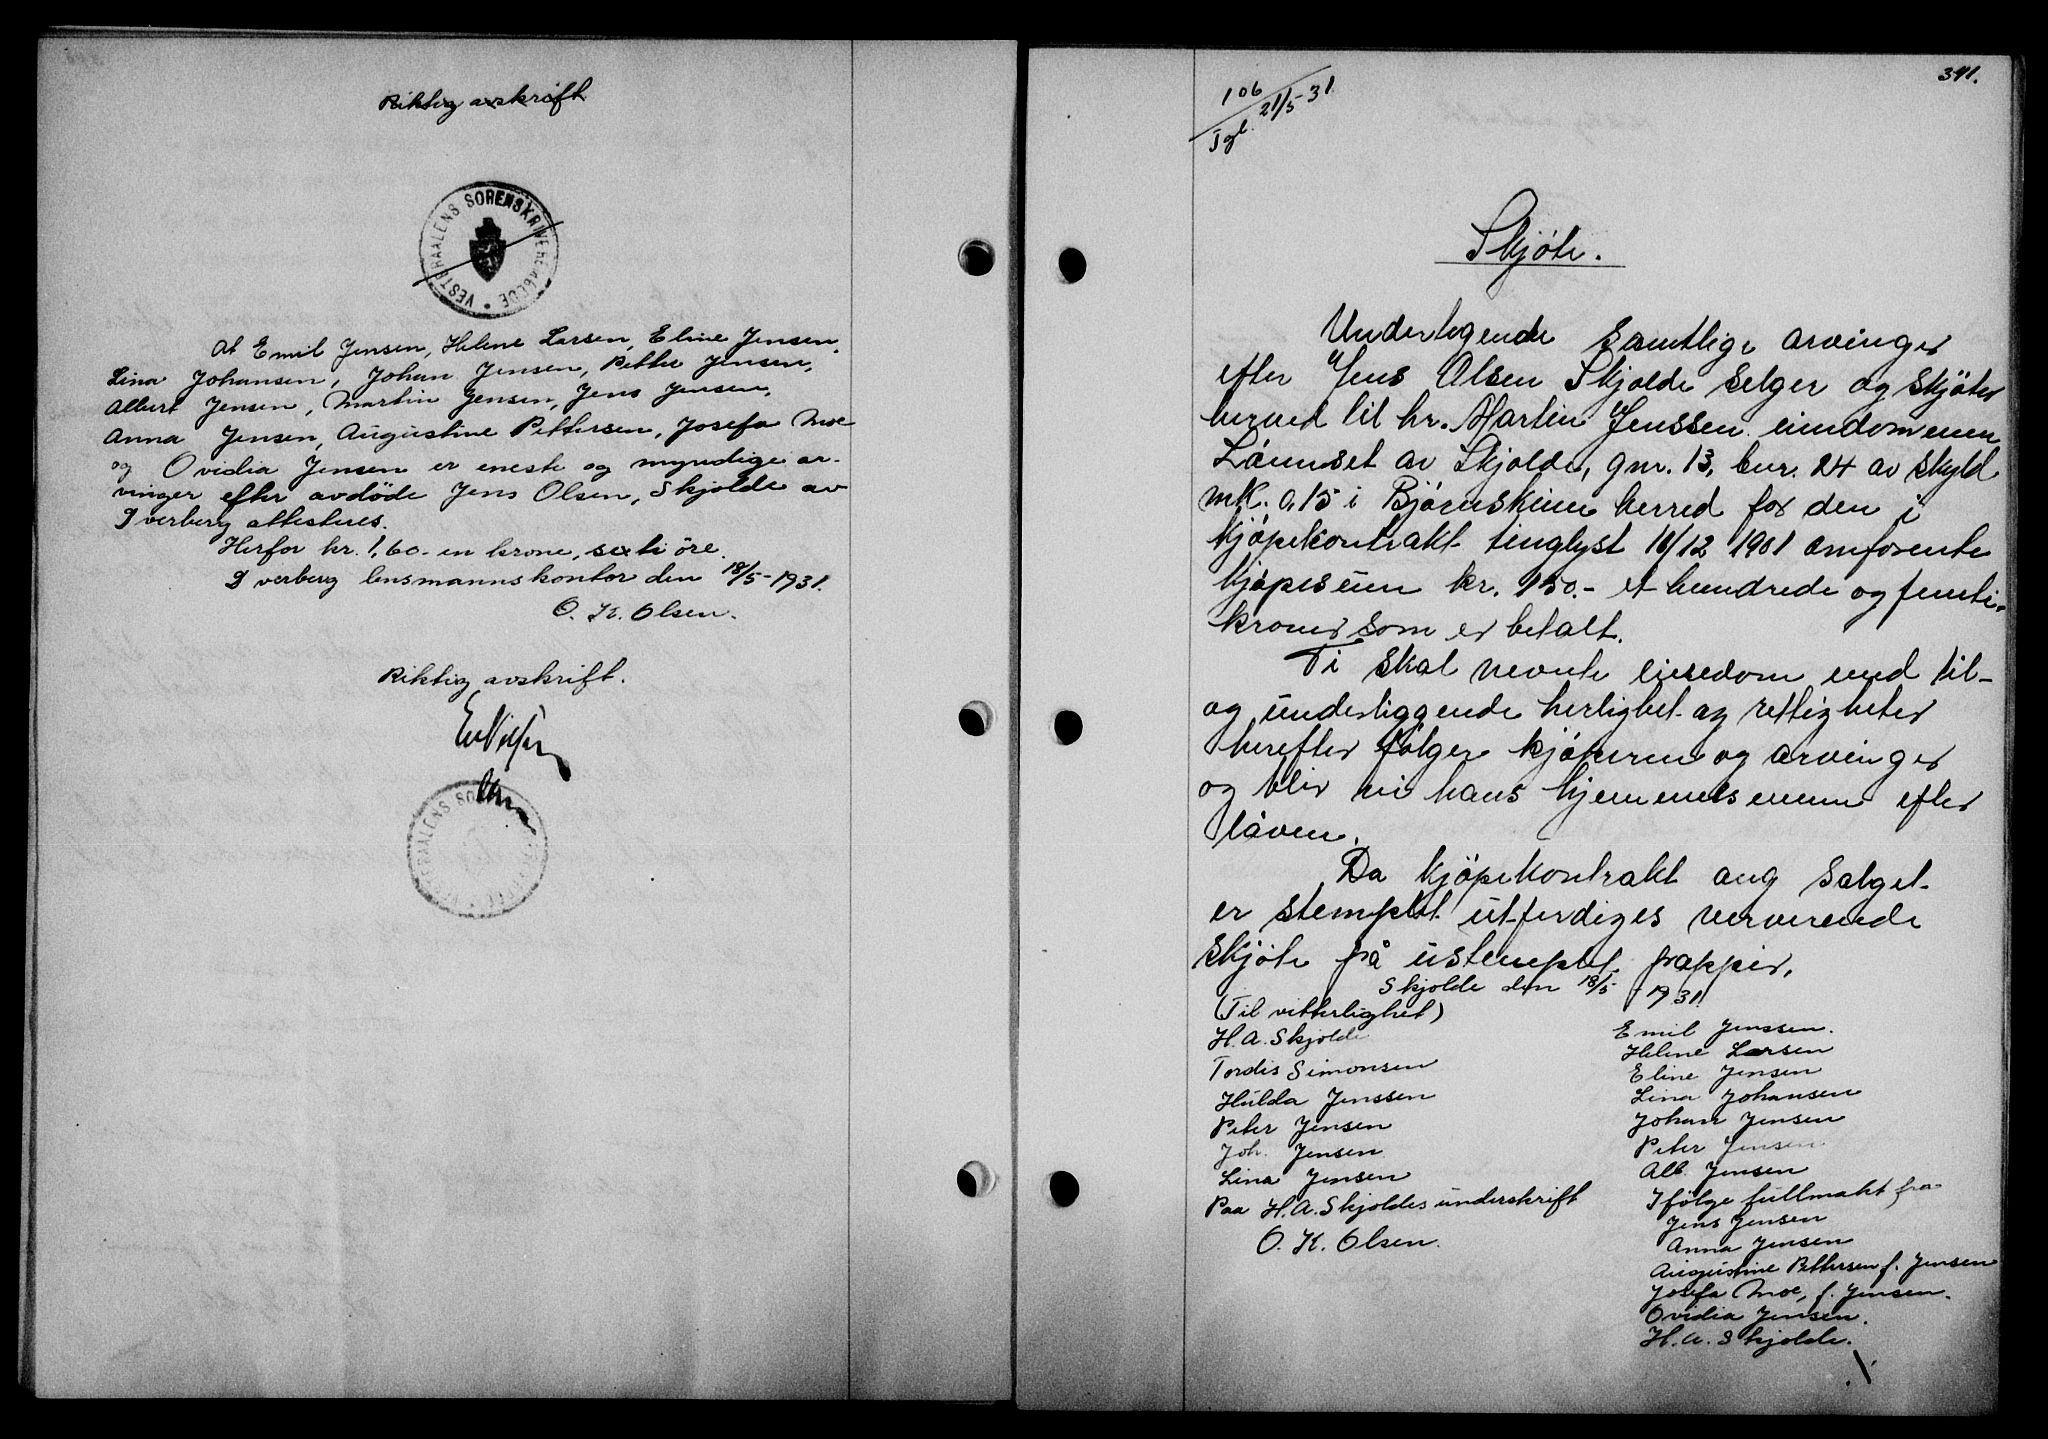 Riktig avskrift
VESTERAALENS SORENSKRIVEREMBEDE
At Emil Jensen, Helene Larsen, Eline Jensen,
Lina Johansen, Johan Jensen, Petter Jensen,
Albert Jensen, Martin Jensen, Jens Jensen,
Anna Jensen, Augustine Pettersen, Josefa Moe
og Ovidia Jensen er eneste og myndige ar-
vinger efter avdöde Jens Olsen, Skjolde av
Dverberg attesteres.
Herfor kr. 1,60 - en krone, sexti öre.
Dverberg lensmannskontor den 18/5-1931.
O. K. Olsen.
Riktig avskrift.
VESTERAALENS SORENSKRIVEREMBEDE
341.
106
21/5-31
Tgl.
Skjöte.
Undertegnede samtlige arvinger
efter Jens Olsen Skjolde selger og skjöter
herved til hr. Martin Jenssen eiendommen
av Skjolde, gnr. 13, bnr. 24 av skyld
mk. 0,15 i Bjørnskinn herred for den i
kjöpekontrakt tinglyst 16/12 1901 omforente
kjöpesum kr. 150.- et hundrede og femti-
kroner som er betalt.
Ti skal nevnte eiendom med til-
og underliggende herlighet og rettigheter
herefter fölger kjöperen og arvinger
og blir vi hans hjemmelsmenn efter
loven.
Da kjöpekontrakt ang salget
er stemplet utferdiges nerverende
skjöte på ustemplet pappir.
Skjolde den 18/5 - 1931
(Til vitterlighet)
H. A. Skjolde
Tordis Simonsen
Hulda Jenssen
Peter Jensen
Joh. Jensen
Lina Jensen
Paa H. A. Skjoldes underskrift
O. K. Olsen.
Emil Jenssen.
Helene Larsen
Eline Jensen
Lina Johansen
Johan Jensen
Peter Jensen
Alb. Jensen
Ifölge fullmakt fra
Jens Jensen
Anna Jensen
Augustine Pettersen f. Jensen
Josefa Moe, f. Jensen.
Ovidia Jensen.
H. A. Skjolde.